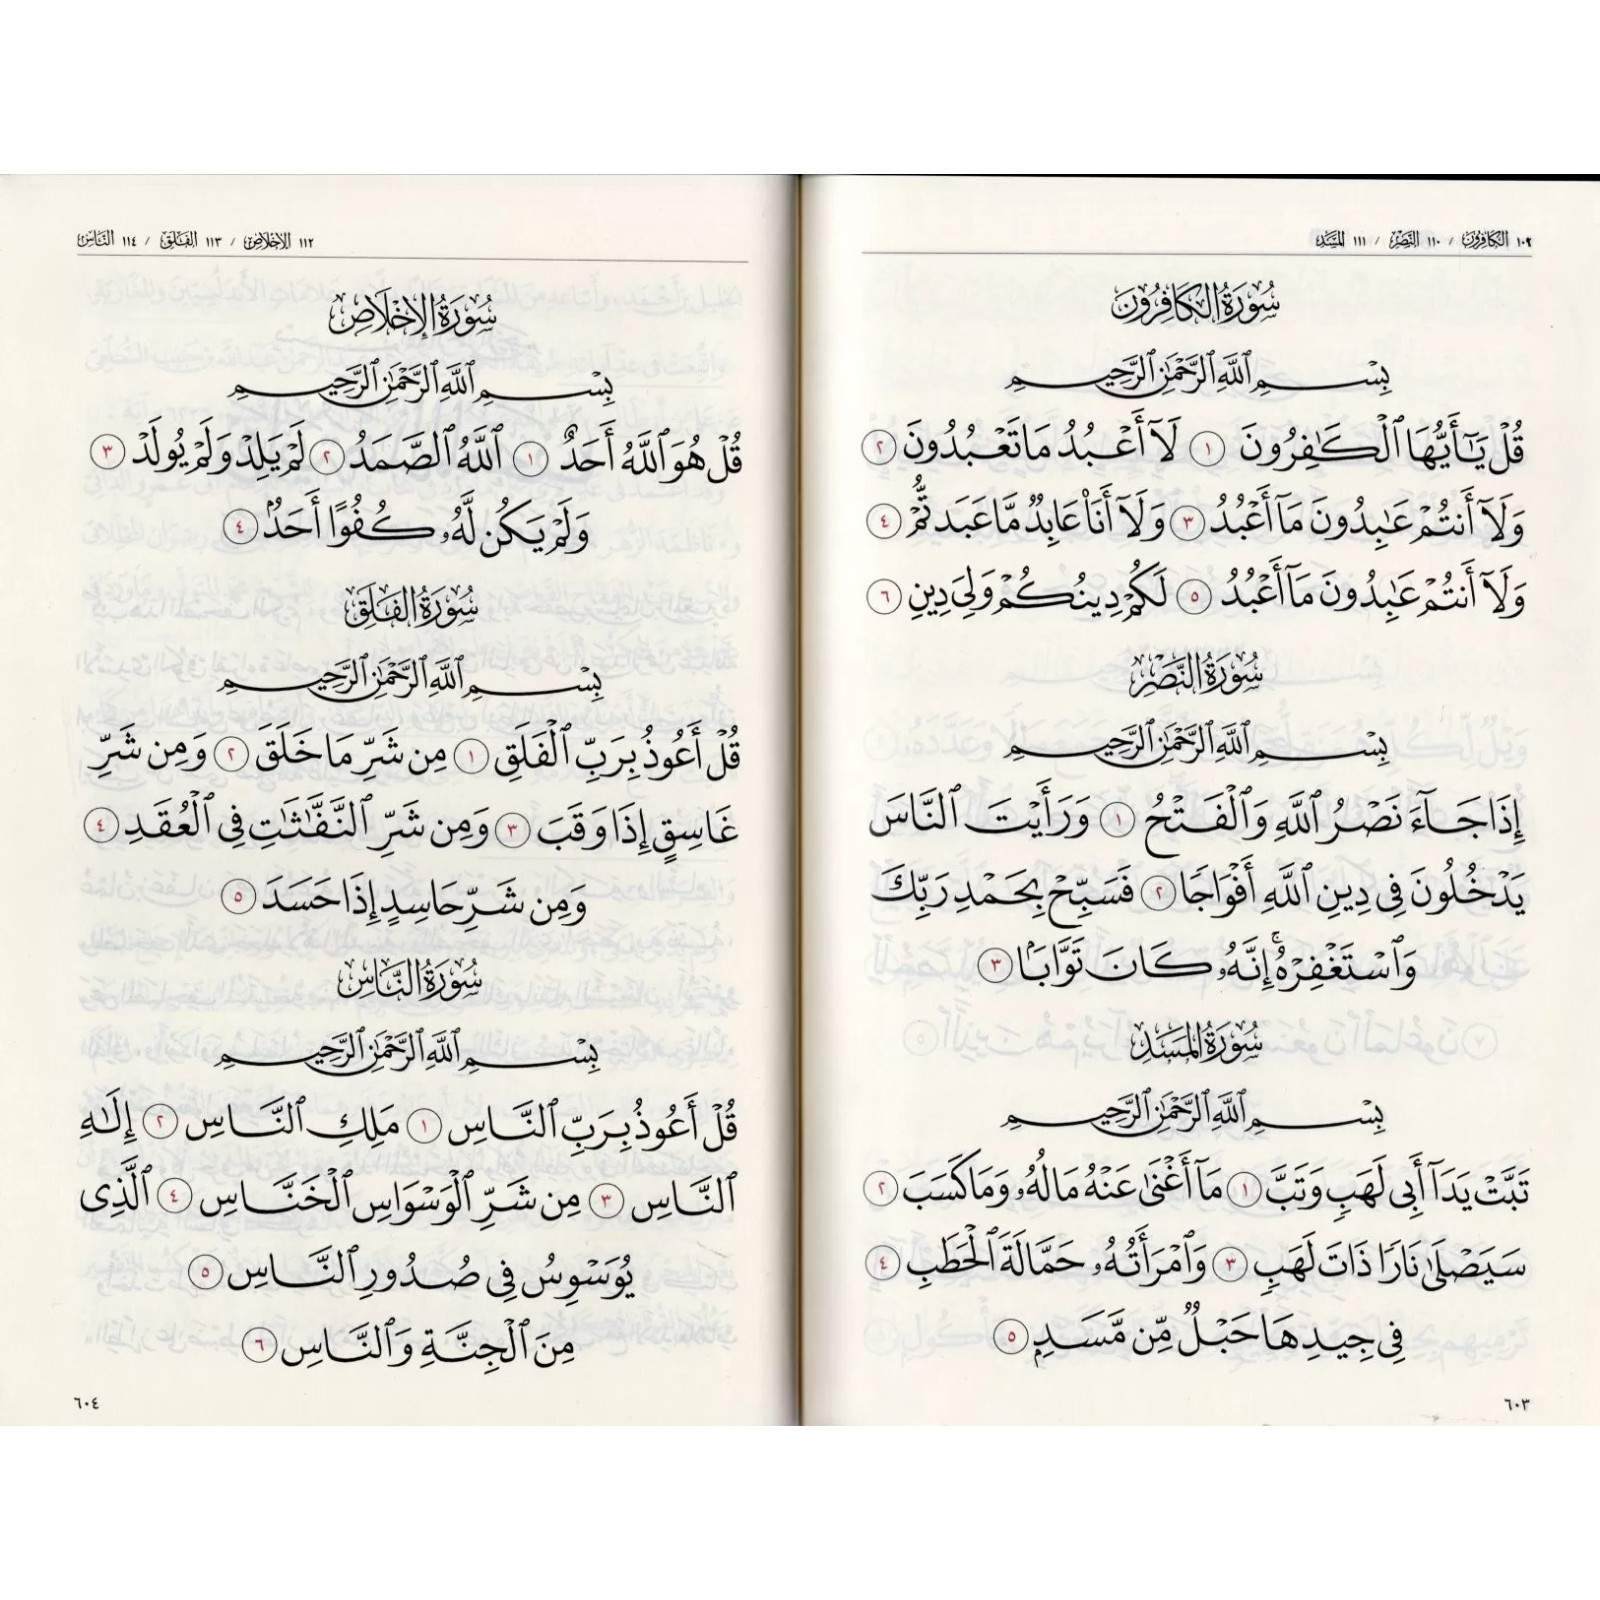 ١٠٩ الكافرون / ١١٠ النصر / ١١١ المسد
سُورَةُ الكَافِرُونَ
بِسْمِ ٱللَّهِ ٱلرَّحْمَٰنِ ٱلرَّحِيمِ
قُلْ يَٰٓأَيُّهَا ٱلْكَٰفِرُونَ ١ لَآ أَعْبُدُ مَا تَعْبُدُونَ ٢
وَلَآ أَنتُمْ عَٰبِدُونَ مَآ أَعْبُدُ ٣ وَلَآ أَنَا۠ عَابِدٌ مَّا عَبَدتُّمْ ٤
وَلَآ أَنتُمْ عَٰبِدُونَ مَآ أَعْبُدُ ٥ لَكُمْ دِينُكُمْ وَلِىَ دِينِ ٦
سُورَةُ النَّصْرِ
بِسْمِ ٱللَّهِ ٱلرَّحْمَٰنِ ٱلرَّحِيمِ
إِذَا جَآءَ نَصْرُ ٱللَّهِ وَٱلْفَتْحُ ١ وَرَأَيْتَ ٱلنَّاسَ
يَدْخُلُونَ فِى دِينِ ٱللَّهِ أَفْوَاجًا ٢ فَسَبِّحْ بِحَمْدِ رَبِّكَ
وَٱسْتَغْفِرْهُ ۚ إِنَّهُۥ كَانَ تَوَّابًۢا ٣
سُورَةُ المَسَدِ
بِسْمِ ٱللَّهِ ٱلرَّحْمَٰنِ ٱلرَّحِيمِ
تَبَّتْ يَدَآ أَبِى لَهَبٍ وَتَبَّ ١ مَآ أَغْنَىٰ عَنْهُ مَالُهُۥ وَمَا كَسَبَ ٢
سَيَصْلَىٰ نَارًا ذَاتَ لَهَبٍ ٣ وَٱمْرَأَتُهُۥ حَمَّالَةَ ٱلْحَطَبِ ٤
فِى جِيدِهَا حَبْلٌ مِّن مَّسَدٍۭ ٥
٦٠٣
١١٢ الإخلاص / ١١٣ الفلق / ١١٤ الناس
سُورَةُ الإِخْلَاصِ
بِسْمِ ٱللَّهِ ٱلرَّحْمَٰنِ ٱلرَّحِيمِ
قُلْ هُوَ ٱللَّهُ أَحَدٌ ١ ٱللَّهُ ٱلصَّمَدُ ٢ لَمْ يَلِدْ وَلَمْ يُولَدْ ٣
وَلَمْ يَكُن لَّهُۥ كُفُوًا أَحَدٌۢ ٤
سُورَةُ الفَلَقِ
بِسْمِ ٱللَّهِ ٱلرَّحْمَٰنِ ٱلرَّحِيمِ
قُلْ أَعُوذُ بِرَبِّ ٱلْفَلَقِ ١ مِن شَرِّ مَا خَلَقَ ٢ وَمِن شَرِّ
غَاسِقٍ إِذَا وَقَبَ ٣ وَمِن شَرِّ ٱلنَّفَّٰثَٰتِ فِى ٱلْعُقَدِ ٤
وَمِن شَرِّ حَاسِدٍ إِذَا حَسَدَ ٥
سُورَةُ النَّاسِ
بِسْمِ ٱللَّهِ ٱلرَّحْمَٰنِ ٱلرَّحِيمِ
قُلْ أَعُوذُ بِرَبِّ ٱلنَّاسِ ١ مَلِكِ ٱلنَّاسِ ٢ إِلَٰهِ
ٱلنَّاسِ ٣ مِن شَرِّ ٱلْوَسْوَاسِ ٱلْخَنَّاسِ ٤ ٱلَّذِى
يُوَسْوِسُ فِى صُدُورِ ٱلنَّاسِ ٥
مِنَ ٱلْجِنَّةِ وَٱلنَّاسِ ٦
٦٠٤